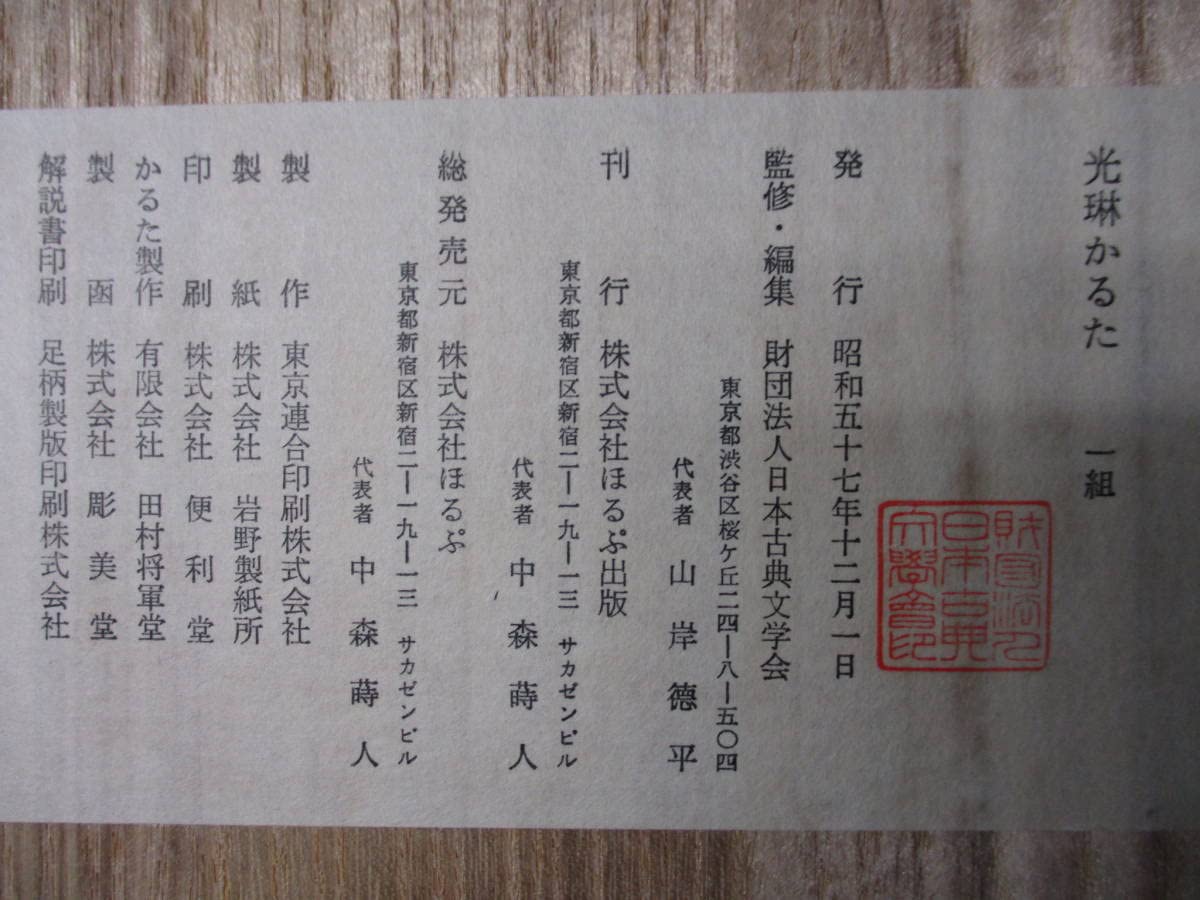 光琳かるた 一組
財団法人
日本古典
文學會印
発行 昭和五十七年十二月一日
監修・編集 財団法人日本古典文学会
東京都渋谷区桜ケ丘二四―八―五〇四
代表者 山岸德平
刊行 株式会社ほるぷ出版
東京都新宿区新宿二―一九―一三 サカゼンビル
代表者 中森蒔人
総発売元 株式会社ほるぷ
東京都新宿区新宿二―一九―一三 サカゼンビル
代表者 中森蒔人
製作 東京連合印刷株式会社
製紙 株式会社 岩野製紙所
印刷 株式会社 便利堂
かるた製作 有限会社 田村将軍堂
製函 株式会社 彫美堂
解説書印刷 足柄製版印刷株式会社